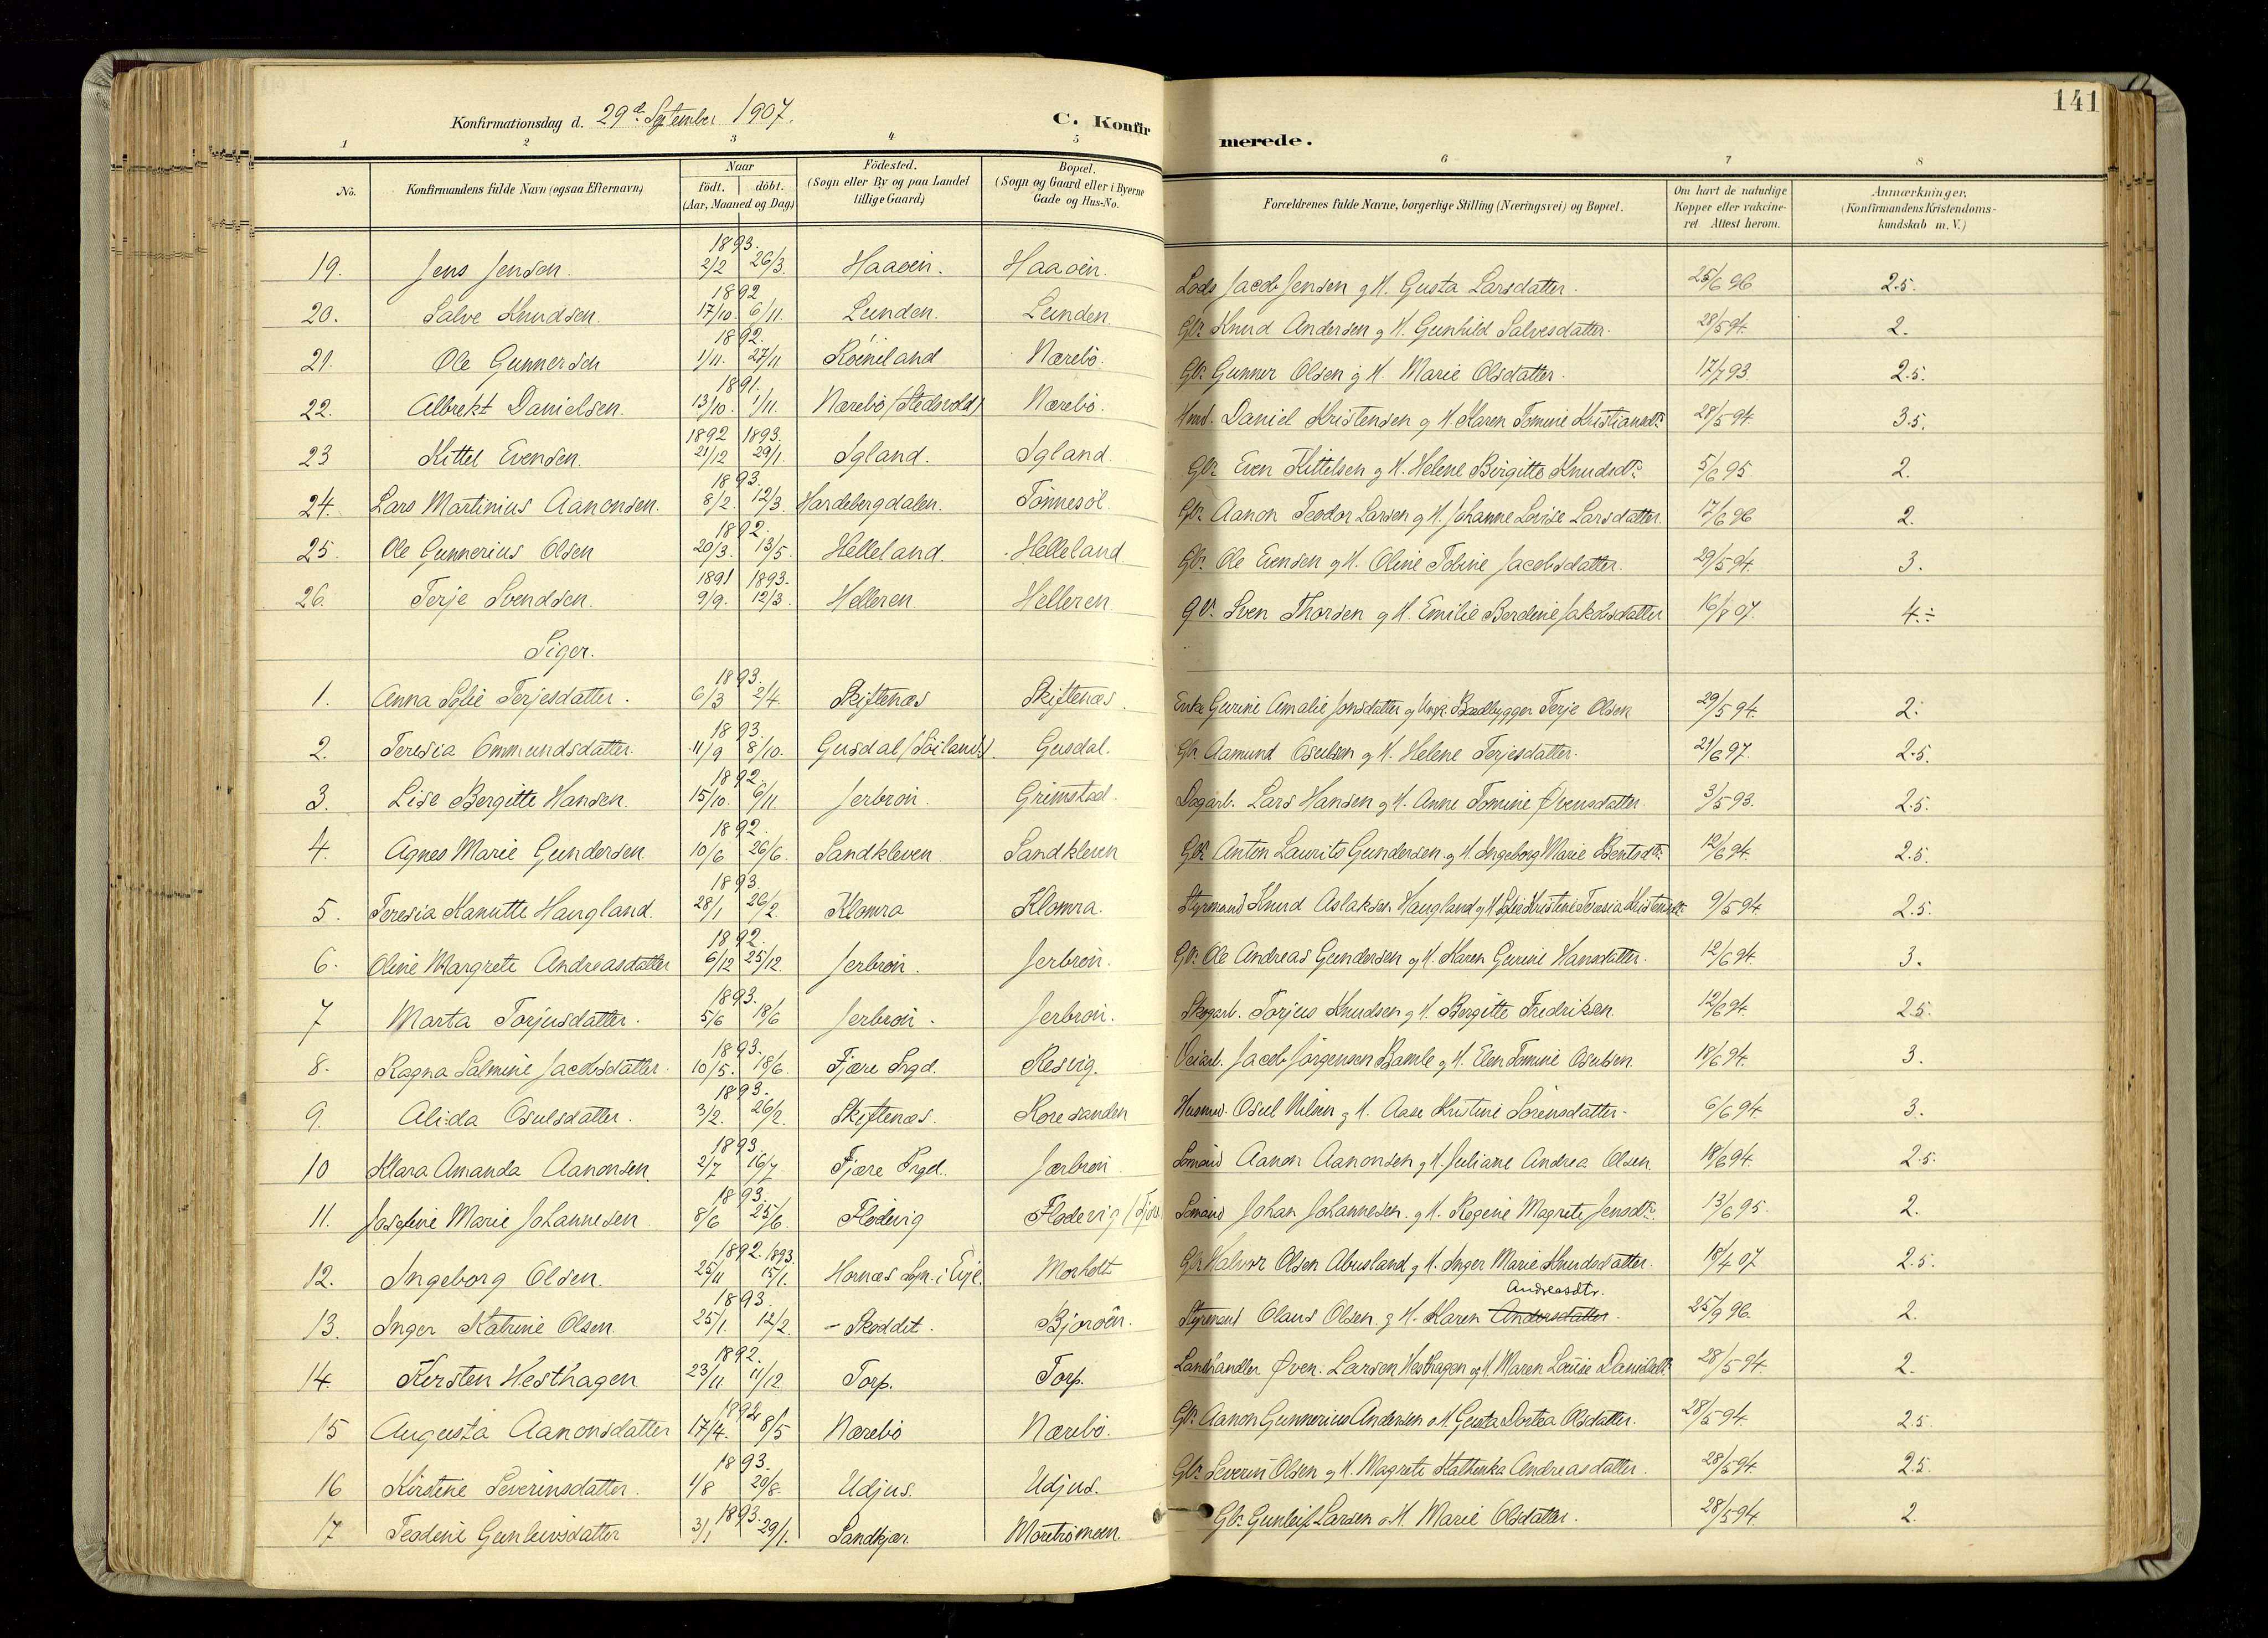 141
Konfirmationsdag d. 29d September 1907. C. Konfir merede.
1 2 3 4 5 6 7 8
No. Konfirmandens fulde Navn (ogsaa Efternavn) Naar født. døbt. (Aar, Maaned og Dag) Fødested. (Sogn eller By og paa Landet tillige Gaard) Bopæl. (Sogn og Gaard eller i Byerne Gade og Hus-No. Forældrenes fulde Navne, borgerlige Stilling (Næringsvei) og Bopæl. Om havt de naturlige Kopper eller vakcineret Attest herom. Anmærkninger. (Konfirmandens Kristendomskundskab m. V.)
1893.
19. Jens Jensen. 2/2 26/3. Haaøen. Haaøen. Lods Jacob Jensen g H. Gusta Larsdatter. 25/6 96 2.5.
1892
20. Salve Knudsen. 17/10. 6/11. Lunden. Lunden. Gbr. Knud Andersen g H. Gunhild Salvesdatter. 28/5 94. 2.
1892.
21. Ole Gunnersen 1/11. 27/11 Nærebø. Gbr. Gunner Olsen g H. Marie Olsdatter. 17/7 93. 2.5.
1891.
22. Albrekt Danielsen. 13/10. 1/11. Nærebø (Stedsvold) Nærebø. Hmd. Daniel Kristensen g H. Karen Tomine Kristiansdtr. 28/5 94. 3.5.
1892 1893.
23 Kittel Evensen. 21/12 29/1. Igland. Igland. Gbr. Even Kittelsen g H. Helene Birgitte Knudsdtr. 5/6 95 2.
1893.
24. Lars Martinius Aanonsen. 8/2. 12/3. Hardebergdalen. Tønnesøl. Gbr. Aanon Teodor Larsen g H. Johanne Lovise Larsdatter. 17/6 96 2.
1892.
25. Ole Gunnerius Olsen 20/3. 13/5. Helleland. Helleland. Gbr. Ole Evensen g H. Oline Tobine Jacobsdatter. 29/5 94. 3.
1891 1893.
26. Terje Svendsen. 9/9. 12/3. Helleren. Helleren Gbr. Sven Thorsen g H. Emilie Berdine Jakobsdatter 16/8 07. 4.÷
Piger.
1893.
1. Anna Sofie Terjesdatter. 6/3 2/4. Skiftenæs Skiftenæs. Enke Gurine Amalie Jonsdatter g Ungk. Baadbygger Terje Olsen 29/5 94. 2.
1893.
2. Teresia Ommundsdatter. 11/9 8/10. Gusdal (Søiland). Gusdal. Gbr. Aamund Osulsen g H. Helene Terjesdatter. 21/6 97. 2.5.
1892.
3. Lise Bergitte Hansen. 15/10. 6/11. Jerbrøn. Grimstad. Dagarb. Lars Hansen g H. Anne Tomine Øvensdatter. 3/5 93. 2.5.
1892.
4. Agnes Marie Gundersen. 10/6 26/6. Sandkleven. Sandkleven Gbr. Anton Laurits Gundersen g H. Ingeborg Marie Bentsdtr. 12/6 94. 2.5.
1893.
5. Teresia Kanutte Haugland. 28/1 26/2. Klomra Klomra. Styrmand Knud Aslaksen Haugland g H. Sofie Kristine 9/5 94 2.5.
1892.
6. Oline Margrete Andreasdatter 6/12 25/12. Jerbrøn. Jerbrøn. Gbr. Ole Andreas Gundersen g H. Karen Gurine Hansdatter. 12/6 94. 3.
1893.
7 Marta Torjusdatter. 5/6 18/6 Jerbrøn. Jerbrøn. Skogarb. Torjus Knudsen g H. Bergitte Fredriksen. 12/6 94. 2.5.
1893.
8. Ragna Salmine Jacobsdatter. 10/5. 18/6. Fjære Sogd. Resvig. Veiarb. Jacob Jørgensen Bamle g H. Elen Tomine Osulsen. 18/6 94. 3.
1893.
9. Alida Osulsdatter. 3/2. 26/2. Skiftenæs. Roresanden Husmd. Osul Nilsen g H. Aase Kristine Sørensdatter. 6/6 94. 3.
1893.
10 Klara Amanda Aanonsen. 2/7 16/7 Fjære Prgd. Jærbrøn. Sømand Aanon Aanonsen g H. Juliane Andrea Olsen. 18/6 94. 2.5.
1893.
11. Josefine Marie Johannesen 8/6 25/6. Flødevig Flødevig (Fjære Sømand Johan Johannesen g H. Regine Magrete Jensdtr. 13/6 95. 2.
1892. 1893.
12. Ingeborg Olsen. 25/11 15/1. Hornæs Sogn i Evje. Morholt Gbr. Halvor Olsen Abusland g H. Inger Marie Knudsdatter. 18/4 07 2.5.
1893. Andreasdtr.
13. Inger Katrine Olsen. 25/1. 12/2. Skoddet. Bjorøen. Styrmand Olaus Olsen g H. Karen Andersdatter. 25/9 96. 2.
1892.
14. Kirsten Hesthagen 23/11 11/12. Torp. Torp. Landhandler Øven Larsen Hesthagen og H. Maren Lovise Danielsdtr. 28/5 94. 2.
1892
15 Augusta Aanonsdatter 17/4. 8/5 Nærebø Nærebø. Gbr. Aanon Gunnerius Andersen o H. Gusta Dortea Olsdatter. 28/5 94. 2.5.
1893.
16 Kirstene Severinsdatter. 1/8 20/8. Udjus. Udjus. Gbr. Severin Olsen g H. Magrete Kathinka Andreasdatter. 28/5 94. 2.5.
1893.
17 Teodine Gunleivsdatter 3/1 29/1. Sandkjær. Gbr. Gunleif Larsen o H. Marie Olsdatter. 28/5 94 2.